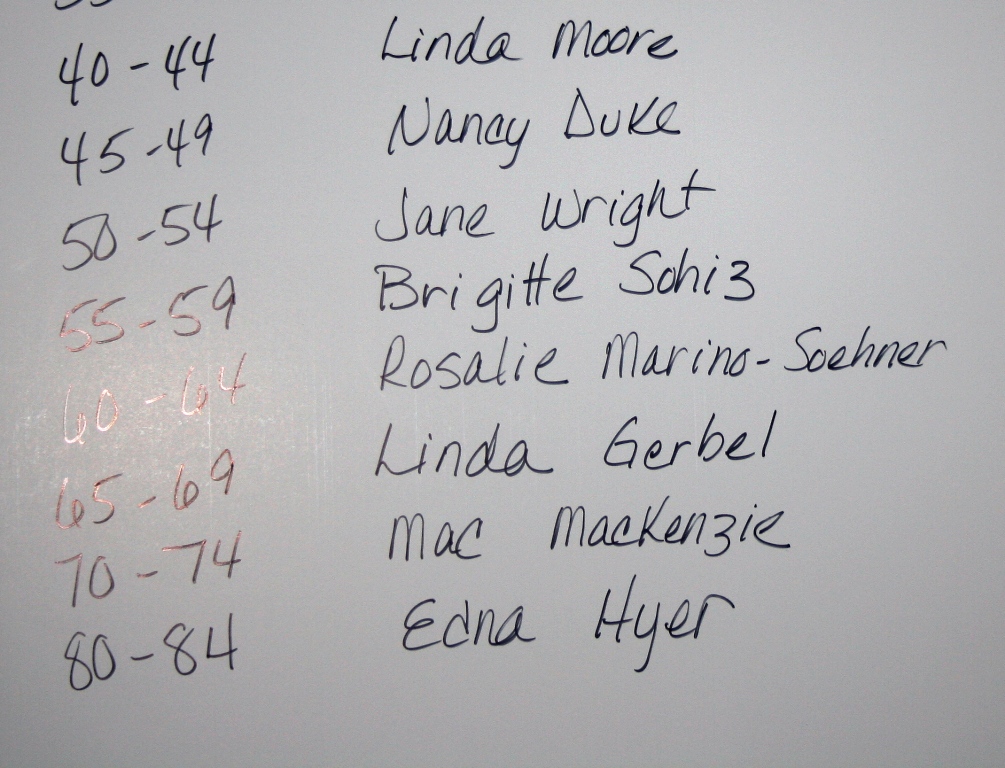 40 - 44 Linda Moore
45 - 49 Nancy Duke
50 - 54 Jane Wright
55 - 59 Brigitte Sohiz
60 - 64 Rosalie Marino-Soehner
65 - 69 Linda Gerbel
70 - 74 Mac MacKenzie
80 - 84 Edna Hyer